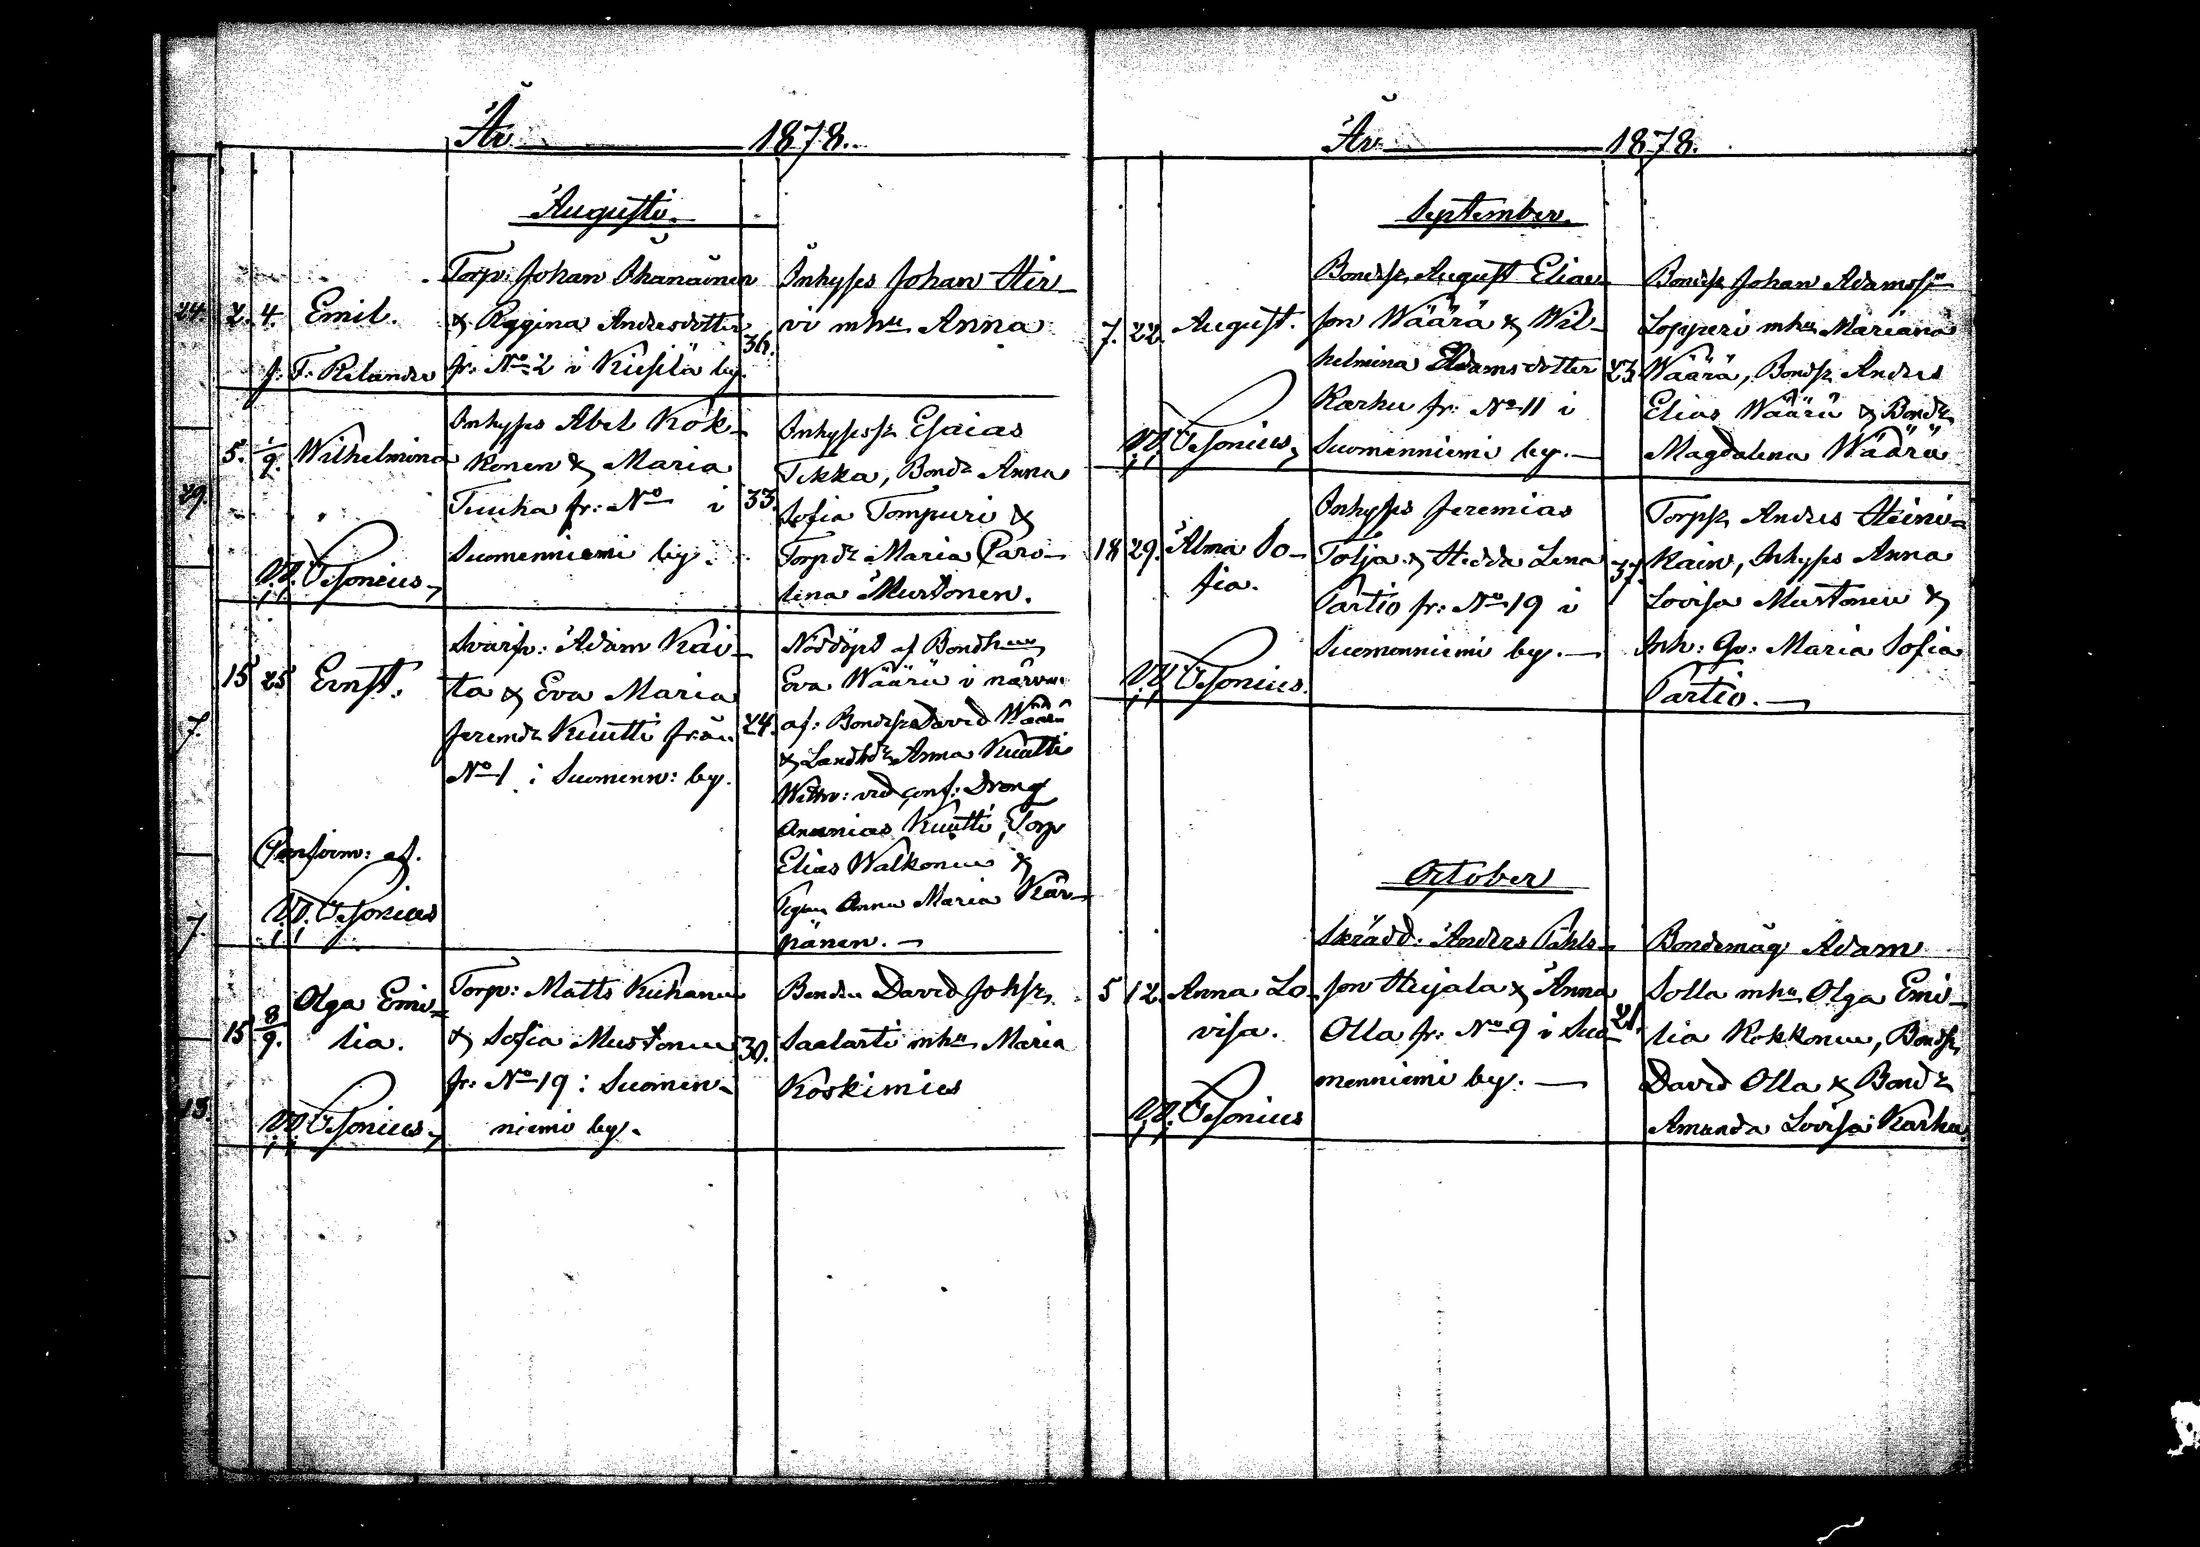 År 1878.
Augusti.
24.
2. 4. Emil.
Torp: Johan Ihanainen
& Regina Andersdotter
fr: No 2 i Kiesilä by.
36.
Inhyses Johan Hir-
vi mhu Anna
f. T. Relander
5. 1/9. Wilhelmina
Inhyses Abel Kok-
konen & Maria
Tuuha fr: No i
Suomenniemi by.
33.
Inhysess Esaias
Tekka, Bondr Anna
Sofia Tompuri &
Torpdr Maria Caro-
lina Murtonen.
29.
15 25 Ernst.
Svarfv: Adam Kai-
ta & Eva Maria
Jeremdr Kuutti från
No 1 i Suomenn: by.
24.
Nöddöpt af Bondhun
Eva Wäärä i närvaro
af: Bondes David Wäärä
& Landbdr Anna Kuutti
Wittn: vid conf: Dreng
Ananias Kuutti, Torp
Elias Walkonen &
Pigan Anna Maria Kär-
nänen.
7.
Confirm: af.
7.
15 8/9. Olga Emi-
lia.
Torp: Matts Kiehanen
& Sofia Mustonen
fr: No 19 i Suomen-
niemi by.
30.
Bonden David Johss.
Saalasti mhu Maria
Koskimies
13.
År 1878.
September.
7. 22. August.
Bondes August Elias-
son Wäärä & Wil-
helmina Adamsdotter
Karhu fr: No 11 i
Suomenniemi by.
23.
Bondes Johan Adamss
Lopperi mhu Mariana
Wäärä, Bonds Anders
Elias Wäärä & Bondr
Magdalena Wäärä
18 29. Alma So-
fia.
Inhyses Jeremias
Tolja & Hedda Lena
Partio fr: No 19 i
Suomenniemi by.
37.
Torps Anders Heini-
kain, Inhyses Anna
Lovisa Murtonen &
Inh: Qv: Maria Sofia
Partio.
October
5 12 Anna Lo-
visa.
Skrädd. Anders Påhls-
son Heijala & Anna
Olla fr: No 9 i Suo-
menniemi by.
21.
Bondemåg Adam
Solla mhu Olga Emi-
lia Kokkonen, Bonds
David Olla & Bondr
Amanda Lovisa Karhu